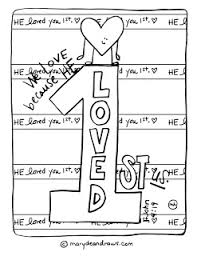 HE loved you 1st. ♡ HE loved you 1st. ♡
We LOVE
because HE
LOVED
1
ST
us.
HE loved you 1st. ♡
HE loved you 1st.
HE loved you 1st.
HE loved
HE loved you 1st.
HE
I John
4:19
© marydeandraws.com